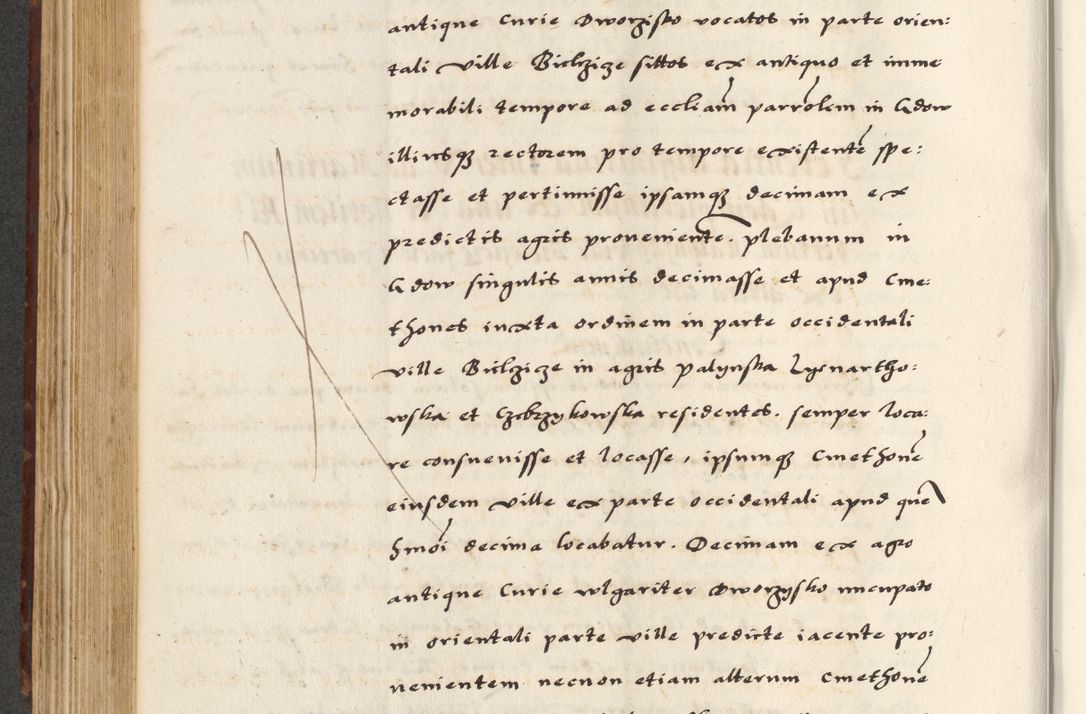 antique Curie Dworzisko vocatos in parte orien:
tali ville Bielzicze sittos ex antiquo et imme
morabili tempore ad eccliam parrolem in Gdow
illiusq rectorem pro tempore existente spe:
ctasse et pertinuisse ipsamq decimam ex
predictis agris proveniente. plebanum in
Gdow singulis annis decimasse et apud Cme:
thones iuxta ordinem in parte occidentali
ville Bielzicze in agris palynska Lycnartho:
wska et Czebrzykowska residentes. semper loca:
re consuevisse et locasse, ipsumq Cmethone
eiusdem ville ex parte occidentali apud que
hmoi decima locabatur. Decimam ex agro
antique Curie wlgariter Dworzysko nuncupato
in orientali parte ville predicte iacente pro:
venientem necnon etiam alterum Cmethone